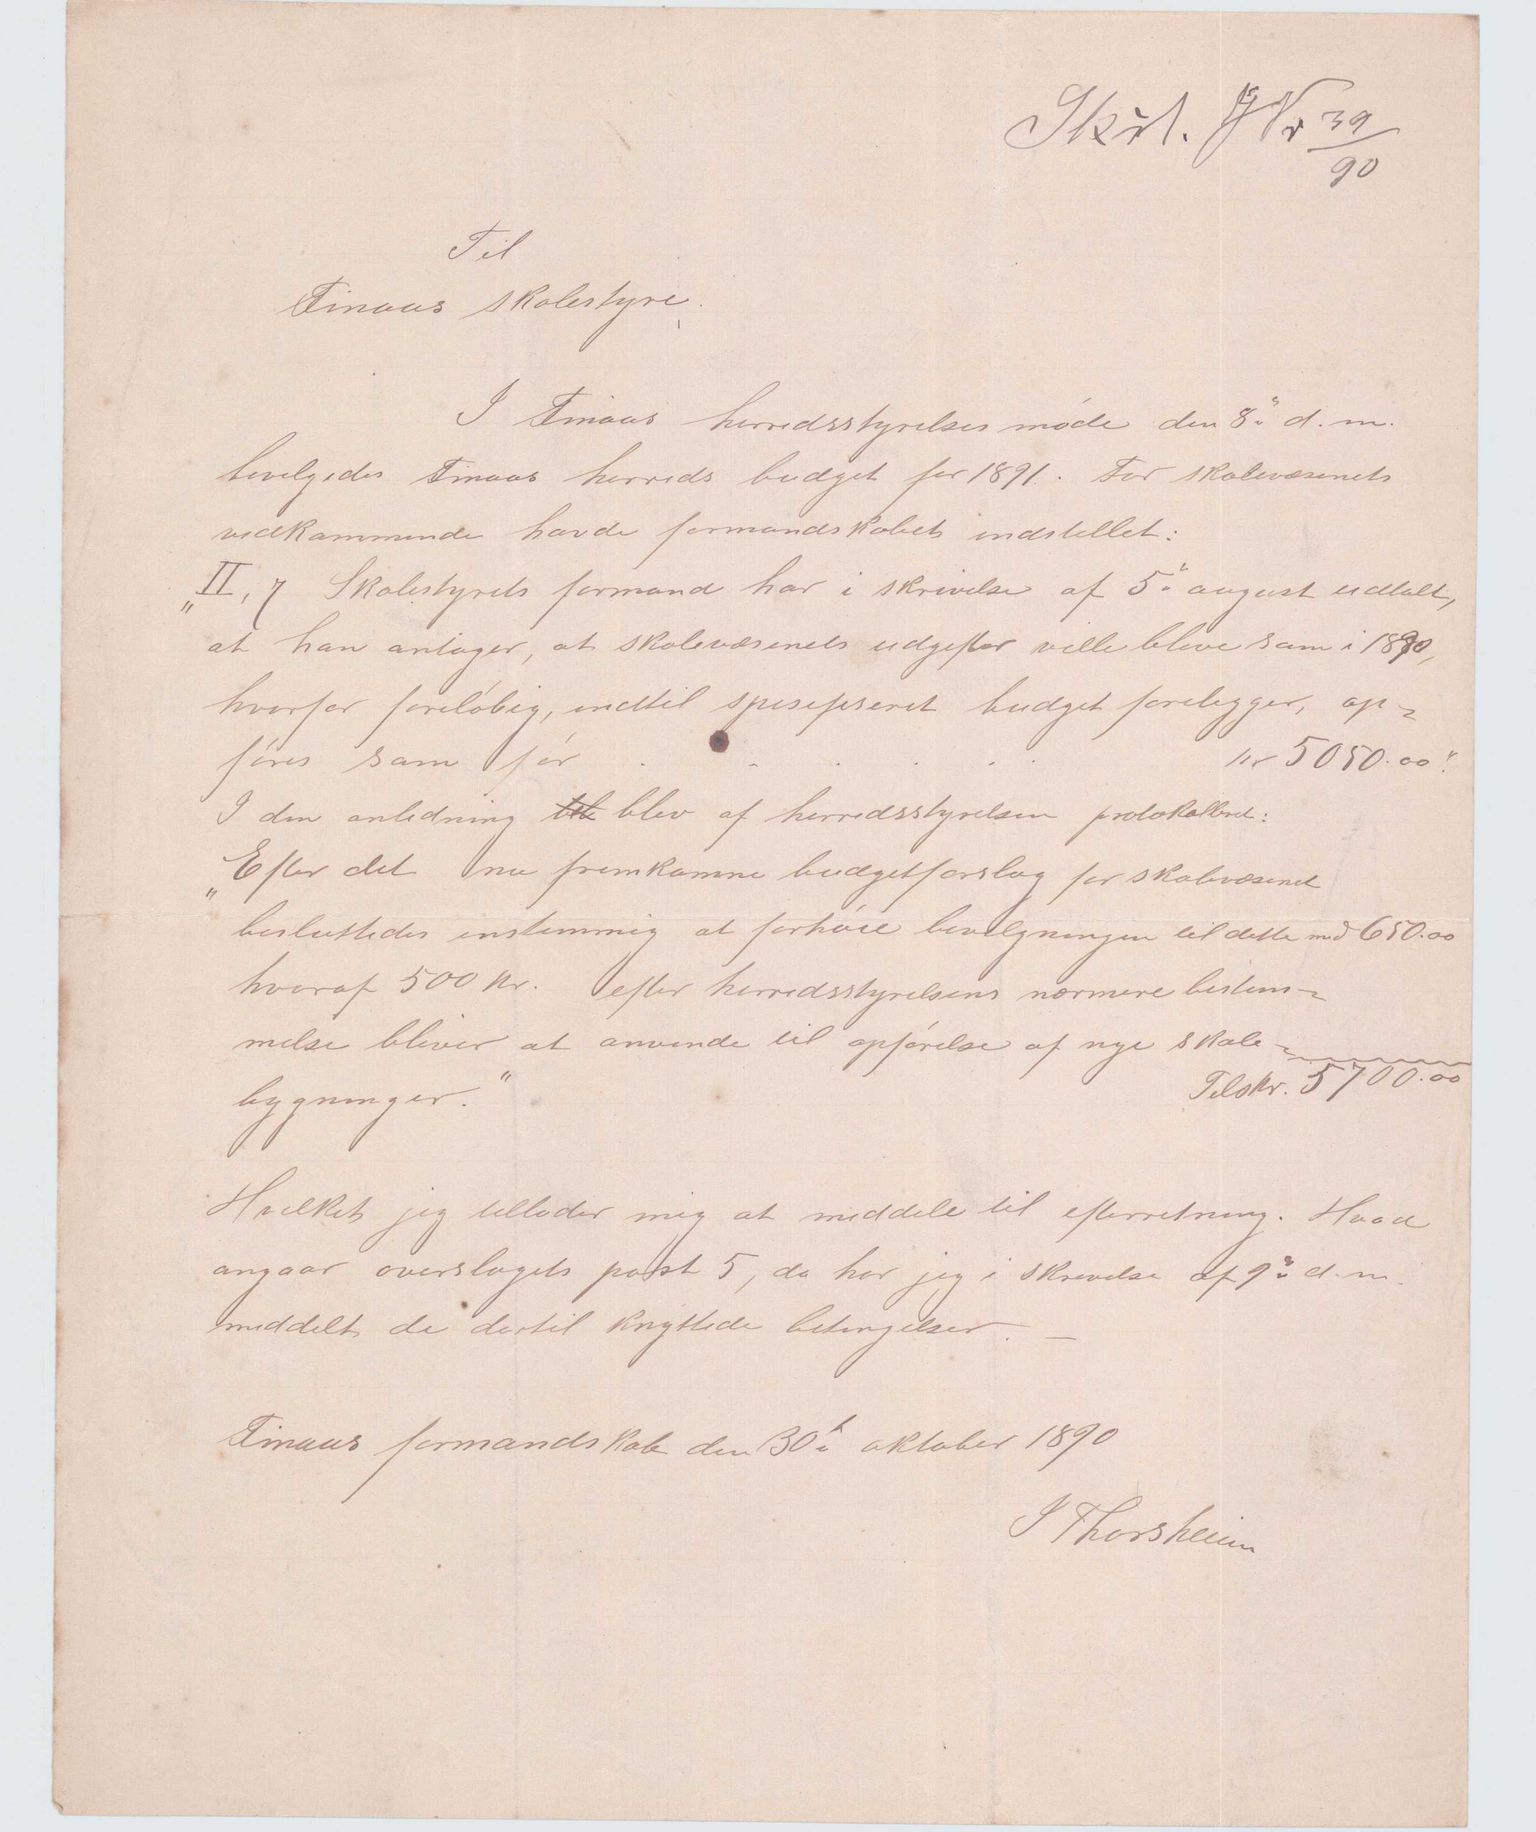 Skst. J Nr 39/90
Til
Finaas skolestyre.
I Finaas herredsstyrelses møde den 8de d. m.
bevilgedes Finaas herreds budget for 1891. For skolevæsenets
vedkommende havde formandskabet indstillet:
"II, 7 Skolestyrets formand har i skrivelse af 5te august udtalt,
at han antager, at skolevæsenets udgifter ville blive som i 1890,
hvorfor foreløbig, indtil spesifiseret budget foreligger, op-
føres som før . . . . . . kr 5050.00".
I den anledning blev af herredsstyrelsen protokolleret:
"Efter det nu fremkomne budgetforslag for skolevæsenet
besluttedes enstemmig at forhøie bevilgningen til dette med 650.00
hvoraf 500 kr. efter herredsstyrelsens nærmere bestem-
melse bliver at anvende til opførelse af nye skole-
bygninger." Tils kr. 5700.00
Hvilket jeg tillader mig at meddele til efterretning. Hvad
angaar overslagets post 5, da har jeg i skrivelse af 9de d. m.
meddelt de dertil knyttede betingelser. —
Finaas formandskab den 30te oktober 1890
J Thorsheim